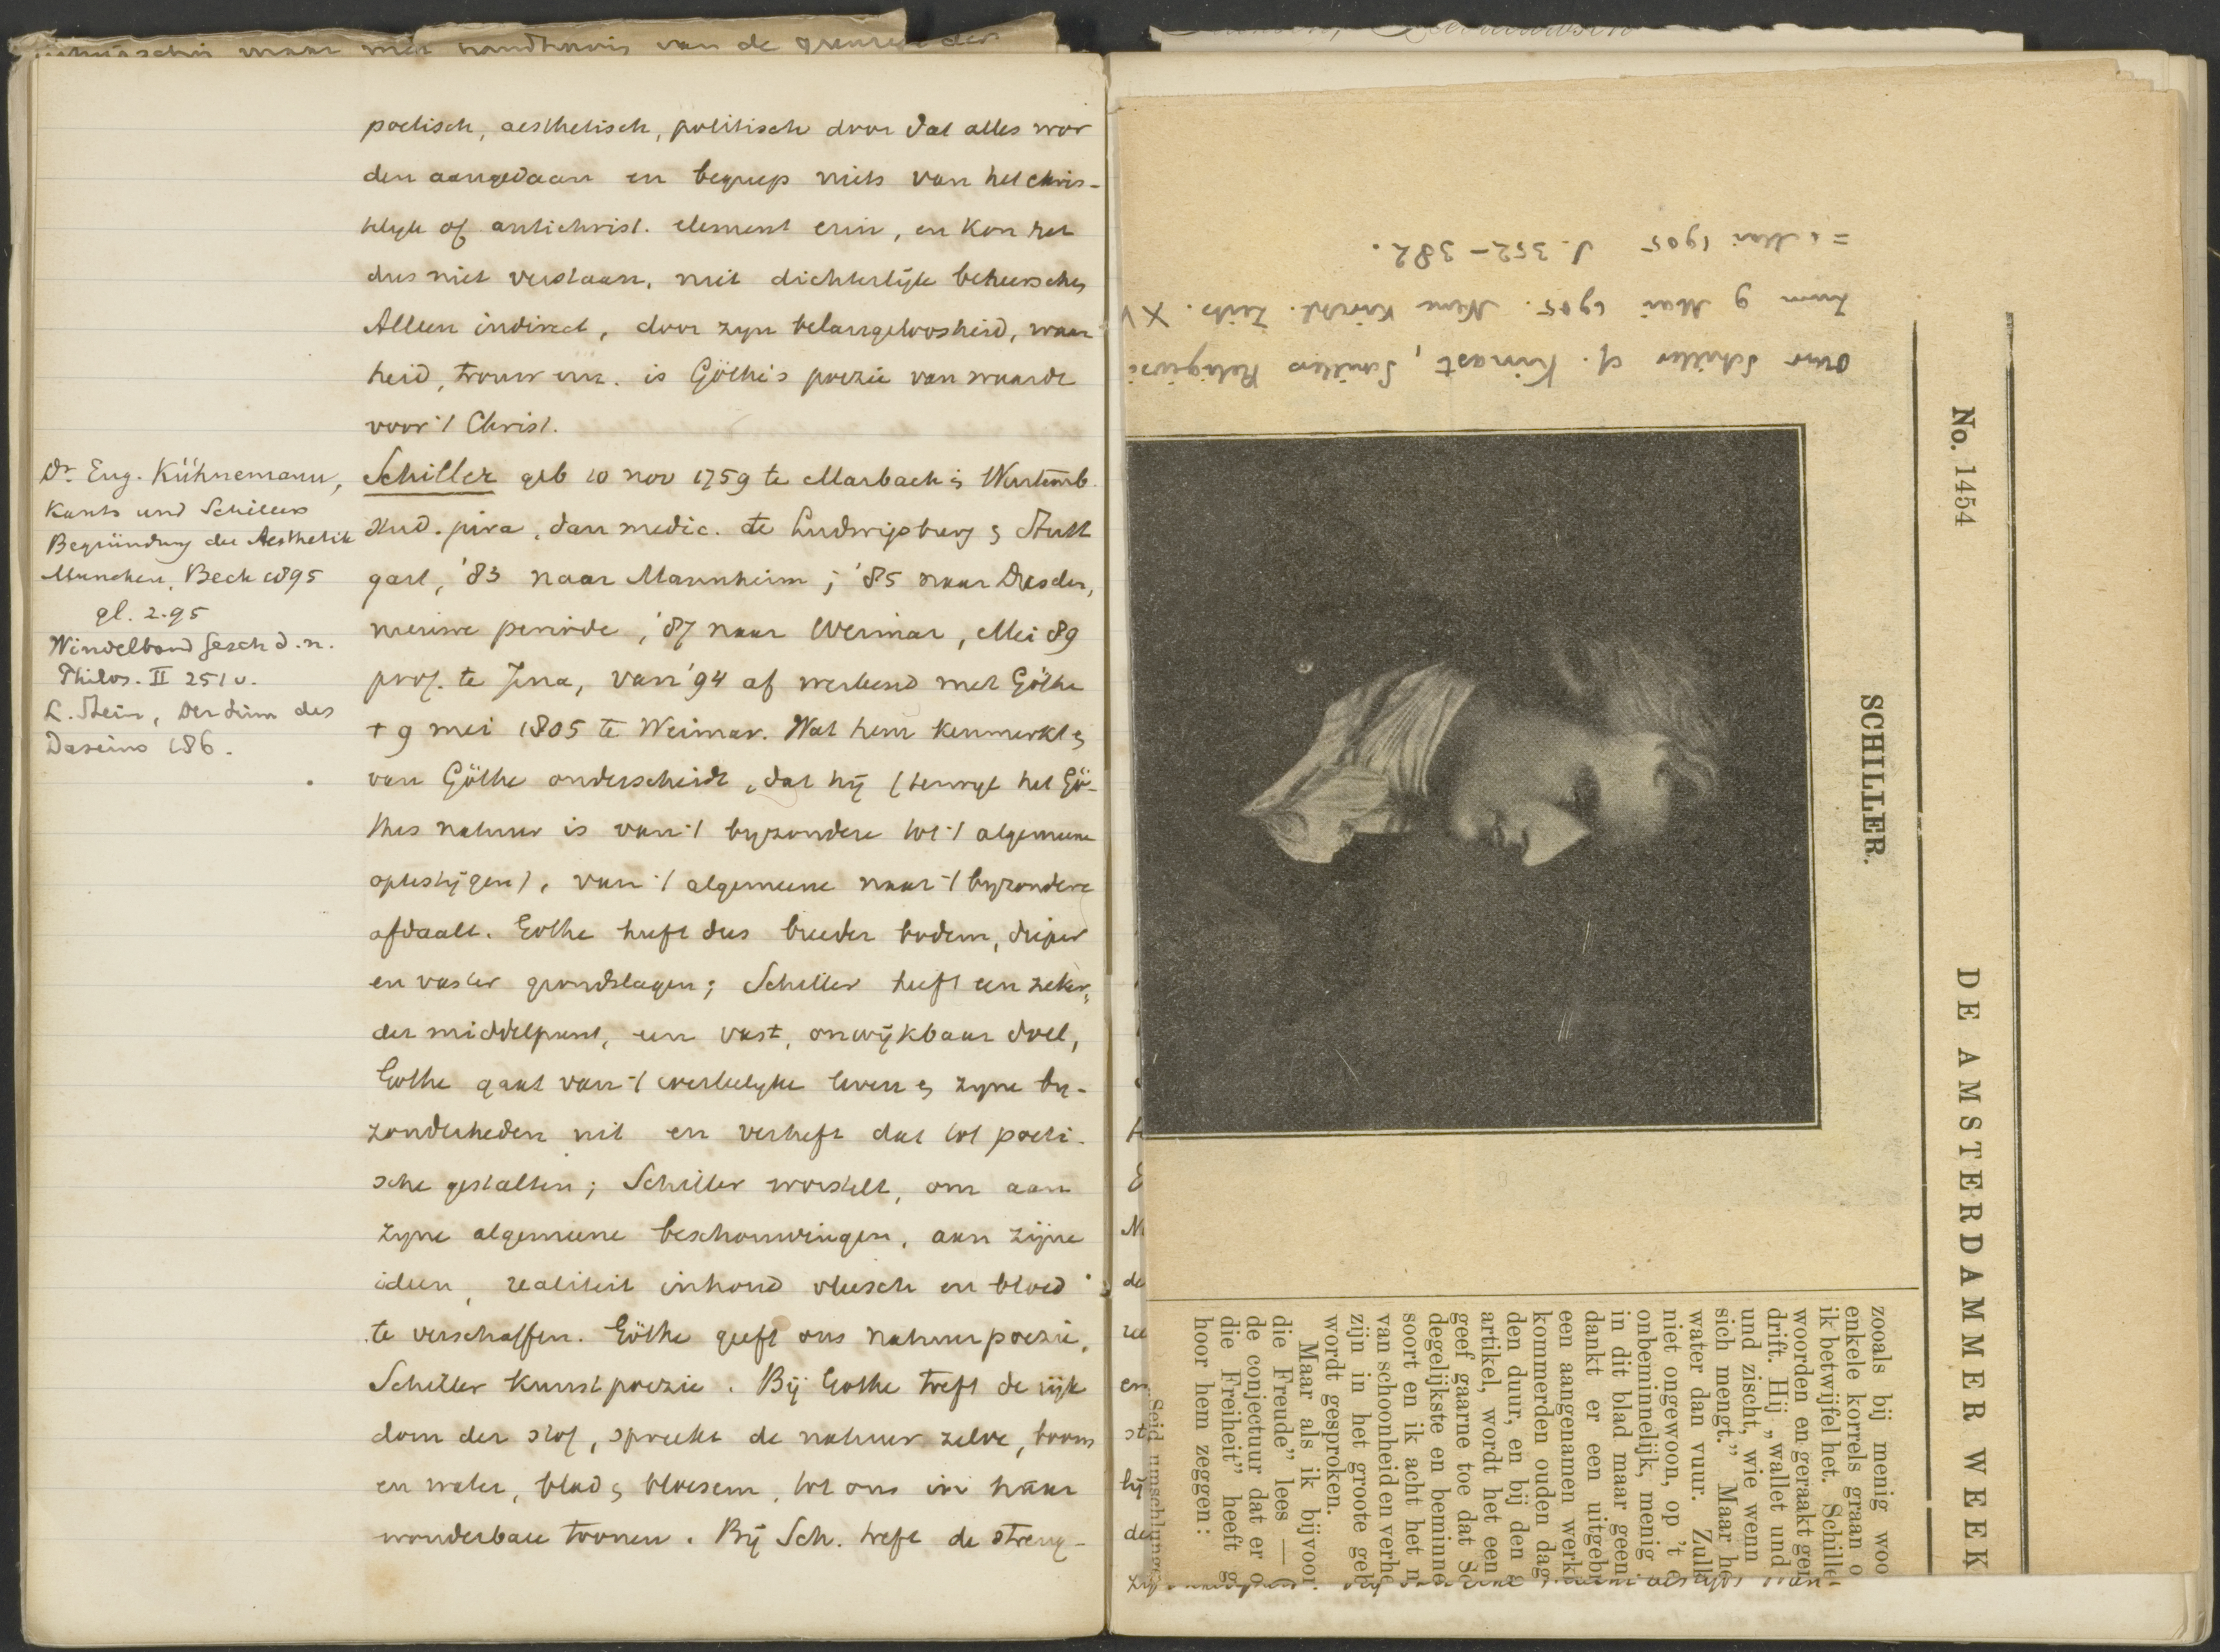 maar met van de grenzen der
poetisch, aesthetisch, politisch door dat alles wor
den aangedaan en begreep niets van het chris-
telyk of antichrist. element erin, en kon het
dus niet verstaan, niet dichterlijk beheerschen
Alleen indirect, door zyn belangeloosheid, waar
heid, trouw enz. is Göthe's poezie van waarde
voor 't Christ.
Schiller geb 10 nov 1759 te Marbach in Wurtemb.
stud. jura, dan medic. te Ludwigsburg & Stutt
gart, '83 naar Mannheim; '85 naar Dresden,
nieuwe periode, '87 naar Weimar, Mei 89
prof. te Jena, van '94 af verbond met Göthe
† 9 mei 1805 te Weimar. Wat hem kenmerkt &
van Göthe onderscheidt, dat hij (terwyl het Gö-
thes natuur is van 't byzondere tot 't algemeene
optestijgen), van 't algemeene naar 't byzondere
afdaalt. Gothe heeft dus breeder bodem, dieper
en vaster grondslagen; Schiller heeft een zeker,
der middelpunt, een vast, onwijkbaar doel,
Gothe gaat van 't werkelyke leven & zyne by-
zonderheden uit en verheft dat tot poeti-
sche gestalten; Schiller worstelt, om aan
zyne algemeene beschouwingen, aan zijne
ideen, realiteit inhoud vleesch en bloed
te verschaffen. Göthe geeft ons natuurpoezie,
Schiller kunstpoezie. Bij Gothe treft de rijk
dom der stof, spreekt de natuur zelve, boom
en water, blad & bloesem, tot ons in haar
wonderbare toonen. Bij Sch. treft de streng-
Dr Eug. Kühnemann,
Kants und Schillers
Begründung der Aesthetik
Munchen, Beck 1895
gl. 2.95
Windelband Gesch d. n.
Philos. II 251 v.
L. Stein, Der Sinn des
Daseins 186.
Over Schiller cf. Kinast, Schillers Religion
zum 9 Mai 1905. Neue Kirchl. Zeits. XV
= Mai 1905 S. 352-382.
No. 1454
DE AMSTERDAMMER WEEK
SCHILLER.
zooals bij menig woo
enkele korrels graan o
ik betwijfel het. Schille
woorden en geraakt ger
drift. Hij „wallet und
und zischt, wie wenn
sich mengt.” Maar he
water dan vuur. Zulk
niet ongewoon, op 't e
onbeminnelijk, menig
in dit blad maar geen
dankt er een uitgebr
een aangenamen werk
kommerden ouden dag
den duur, en bij den
artikel, wordt het een
geef gaarne toe dat Sc
degelijkste en beminne
soort en ik acht het n
van schoonheid en verhe
zijn in het groote geh
wordt gesproken.
Maar als ik bijvoor
die Freude” lees —
de conjectuur dat er o
die Freiheit” heeft g
hoor hem zeggen:
Seid umschlungen